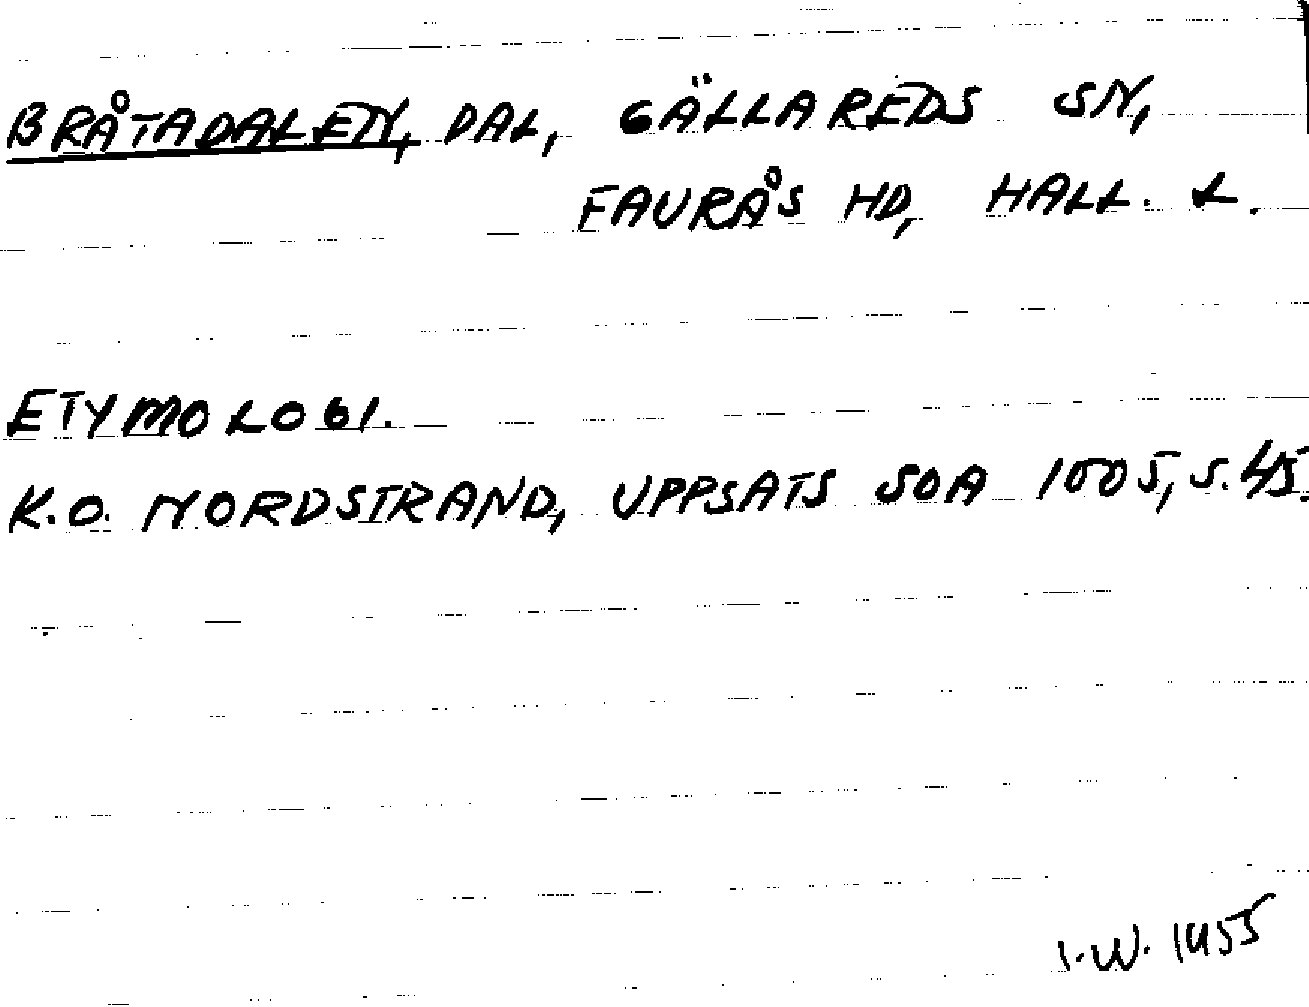 BRÅTADALEN, DAL, GÄLLAREDS SN,
FAURÅS HD, HALL. L.
ETYMOLOGI.
K.O. NORDSTRAND, UPPSATS SOA 1505, S. 45.
I.W. 1955